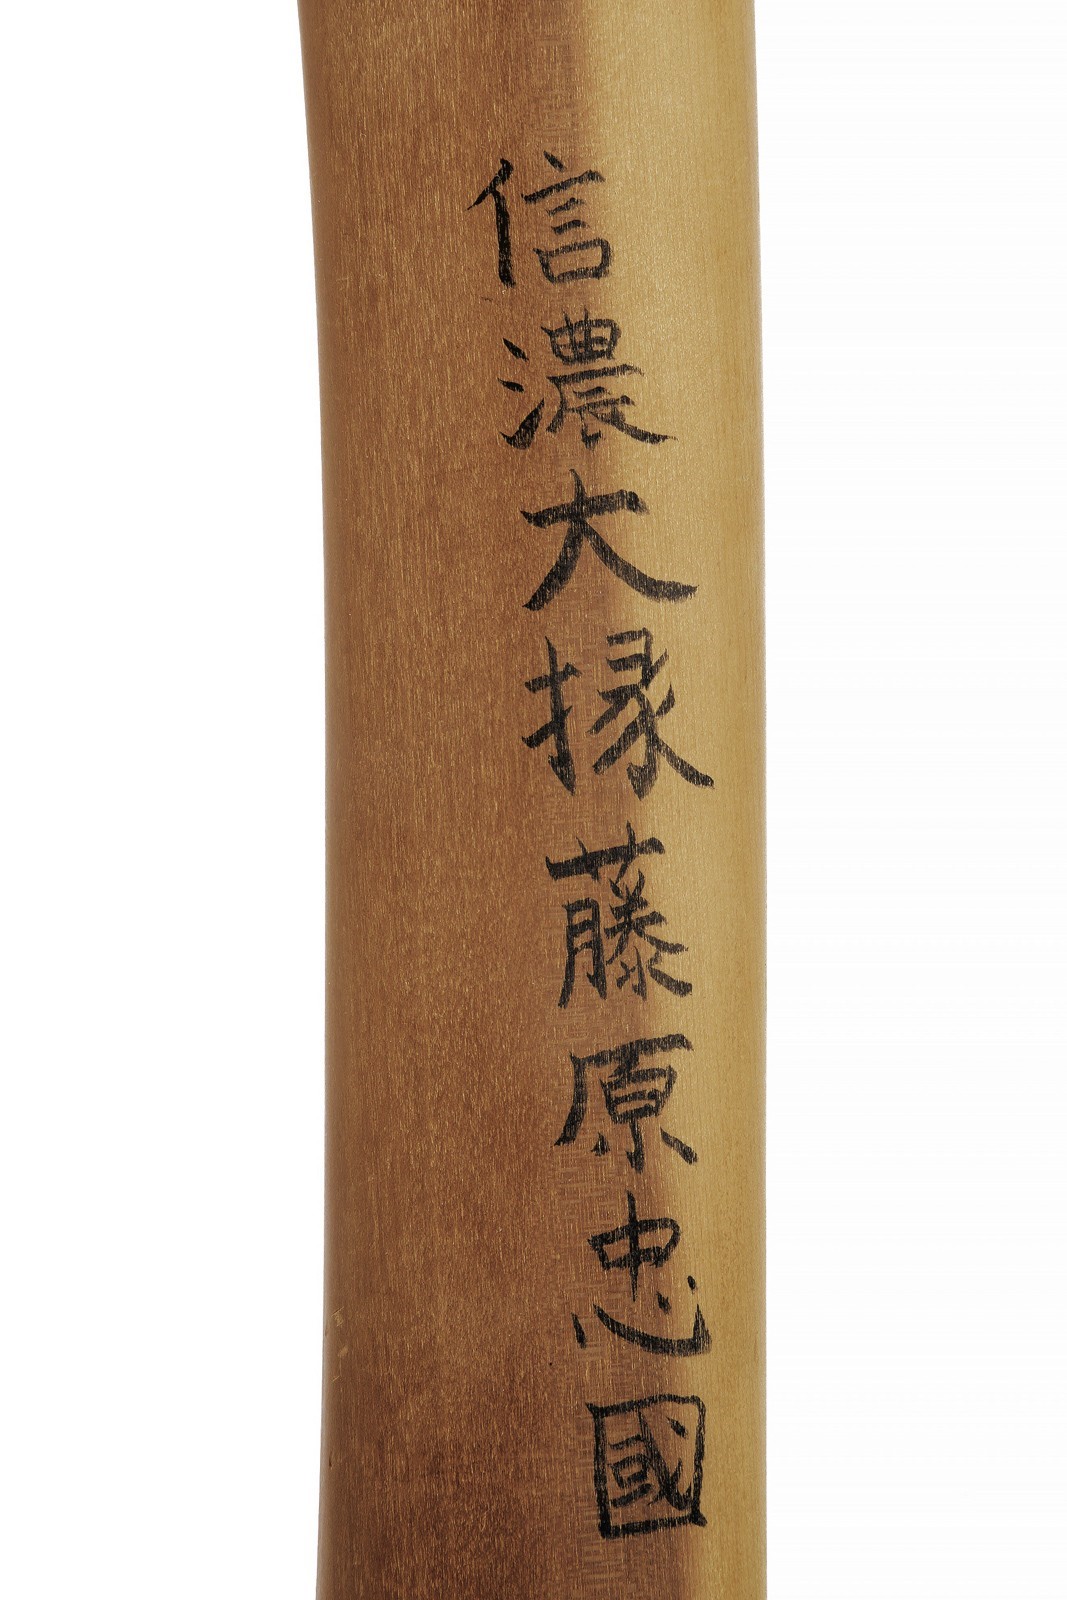 信濃大掾藤原忠國